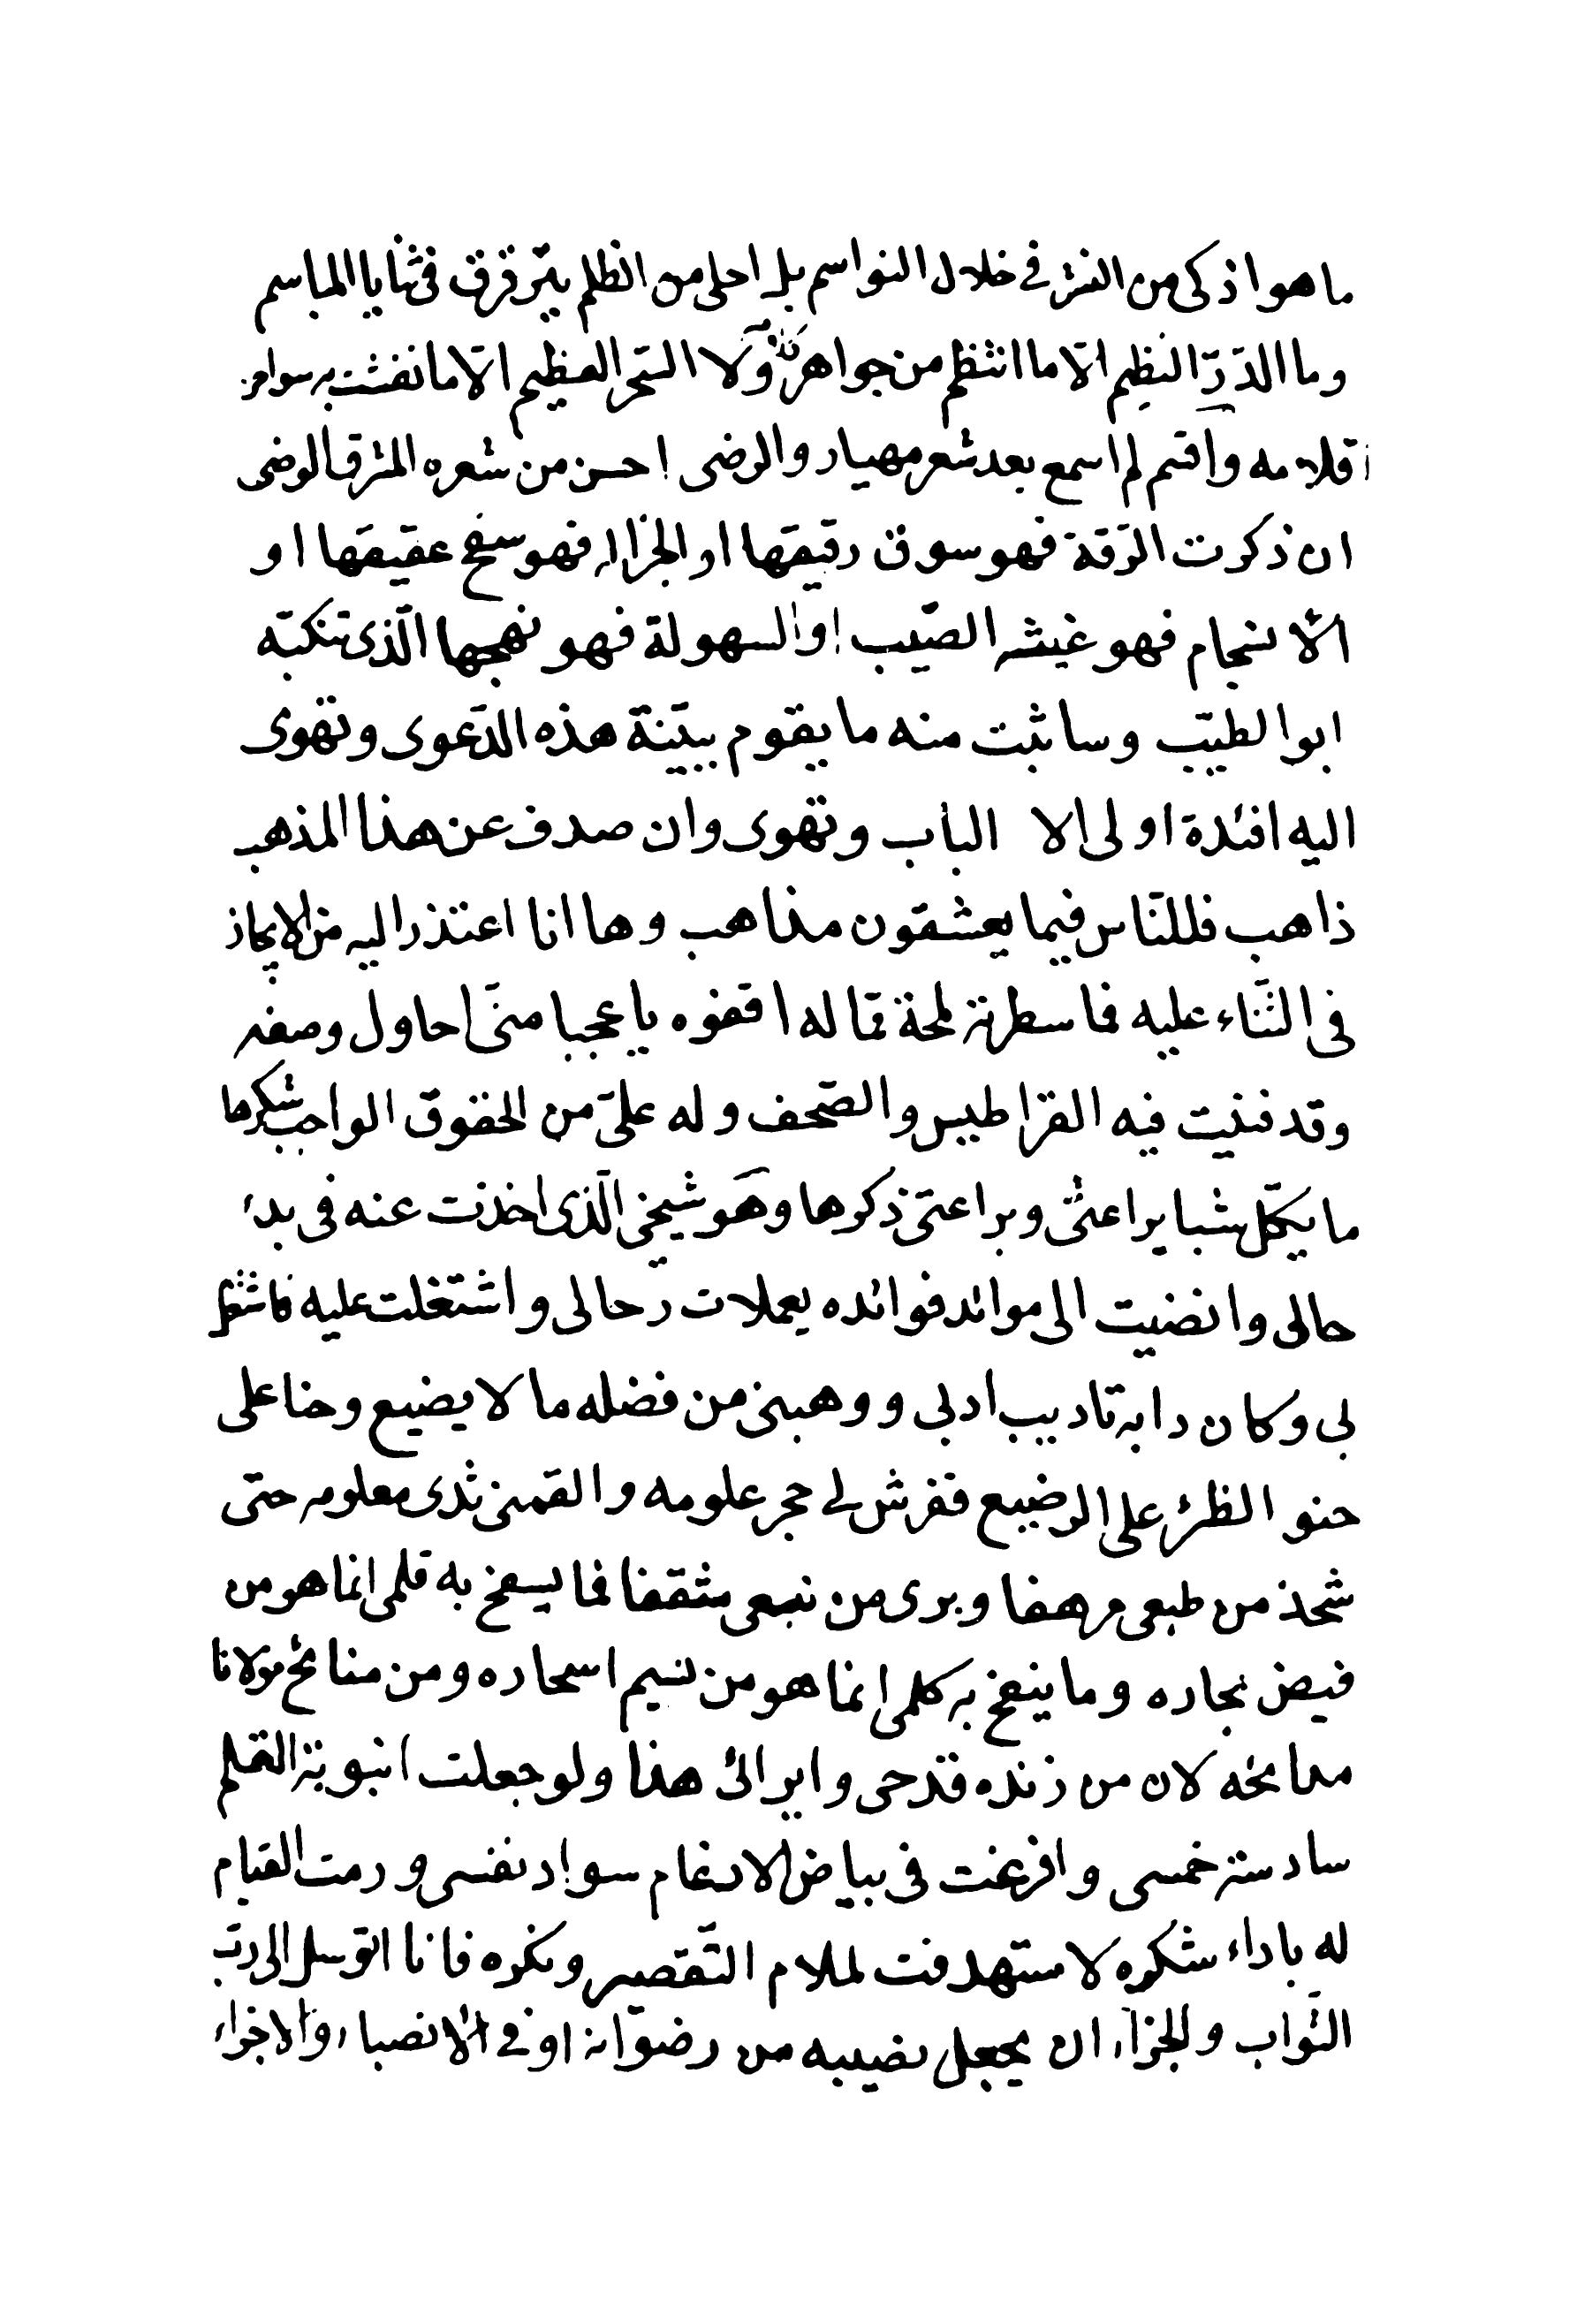 ما هو اذكى من النشر فى خلال النواسم بل احلى من الظلم يترقرق فى ثنايا المباسم
وما الدّرّ النظيم الّا ما انتظم من جواهر ولا السّحر العظيم الّا ما نفثت به سواحر
اقلامه واقسم لم اسمع بعد شعر مهيار والرضى احسن من شعره المشرق الوضى
ان ذكرت الرّقة فهو سوق رقيقها او الجزالة فهو سفح عقيقها او
الانسجام فهو غيثه الصّيب او السهولة فهو نهجها الّذى تنكبّه
ابو الطيّب وساثبت منه ما يقوم ببيّنة هذه الدّعوى وتهوى
اليه افئدة اولى الالباب وتهوى وان صدف عن هذا المذهب
ذاهب فللنّاس فيما يعشقون مذاهب وها انا اعتذر اليه من الايجاز
فى الثّناء عليه فما سطرته لمحة ممّا له اقفوه يا عجبا منّى احاول وصفه
وقد فنيت فيه القراطيس والصّحف وله علىّ من الحقوق الواجب شكرها
ما يكلّ شبا يراعتى وبراعتى ذكرها وهو شيخى الّذى اخذت عنه فى بدء
حالى وانضيت الى موائد فوائده يعملات رحالى واشتغلت عليه فاشتغل
بى وكان دابه تاديب ادبى ووهبنى من فضله ما لا يضيع وحنا على
حنو الظئر على الرضيع ففرش لى حجر علومه والقمنى ثدى معلومه حتى
شحذ من طبعى مرهفا وبرى من نبعى مثقفا فما يسفح به قلمى انما هو من
فيض بحاره وما ينفح به كلمى انما هو من نسيم اسحاره ومن منائح مولانا
مدائحه لان من زنده قدحى وايرائى هذا ولو جعلت انبوبة القلم
سادسة خمسى وافرغت فى بياض الادغام سواد نفسى ورمت القيام
له باداء شكره لاستهدفت لملام التّقصير ونكره فانا اتوسل الى ربّ
الثّواب والجزاء ان يجعل نصيبه من رضوانه اوفى الانصباء والاجزاء